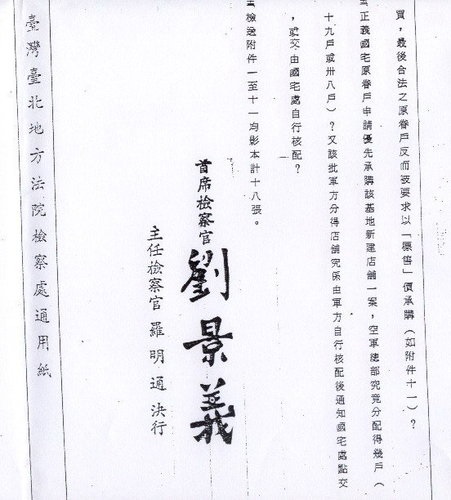 買，最後合法之原眷戶反而被要求以「標售」價承購（如附件十一）？
正義國宅原眷戶申請優先承購該基地新建店舖一案，空軍總部究竟分配得幾戶（
十九戶或卅八戶）？又該批軍方分得店舖究係由軍方自行核配後通知國宅處點交
，或交由國宅處自行核配？
檢送附件一至十一均影本計十八張。
首席檢察官 劉景義
主任檢察官 羅明通 決行
臺灣臺北地方法院檢察處通用紙